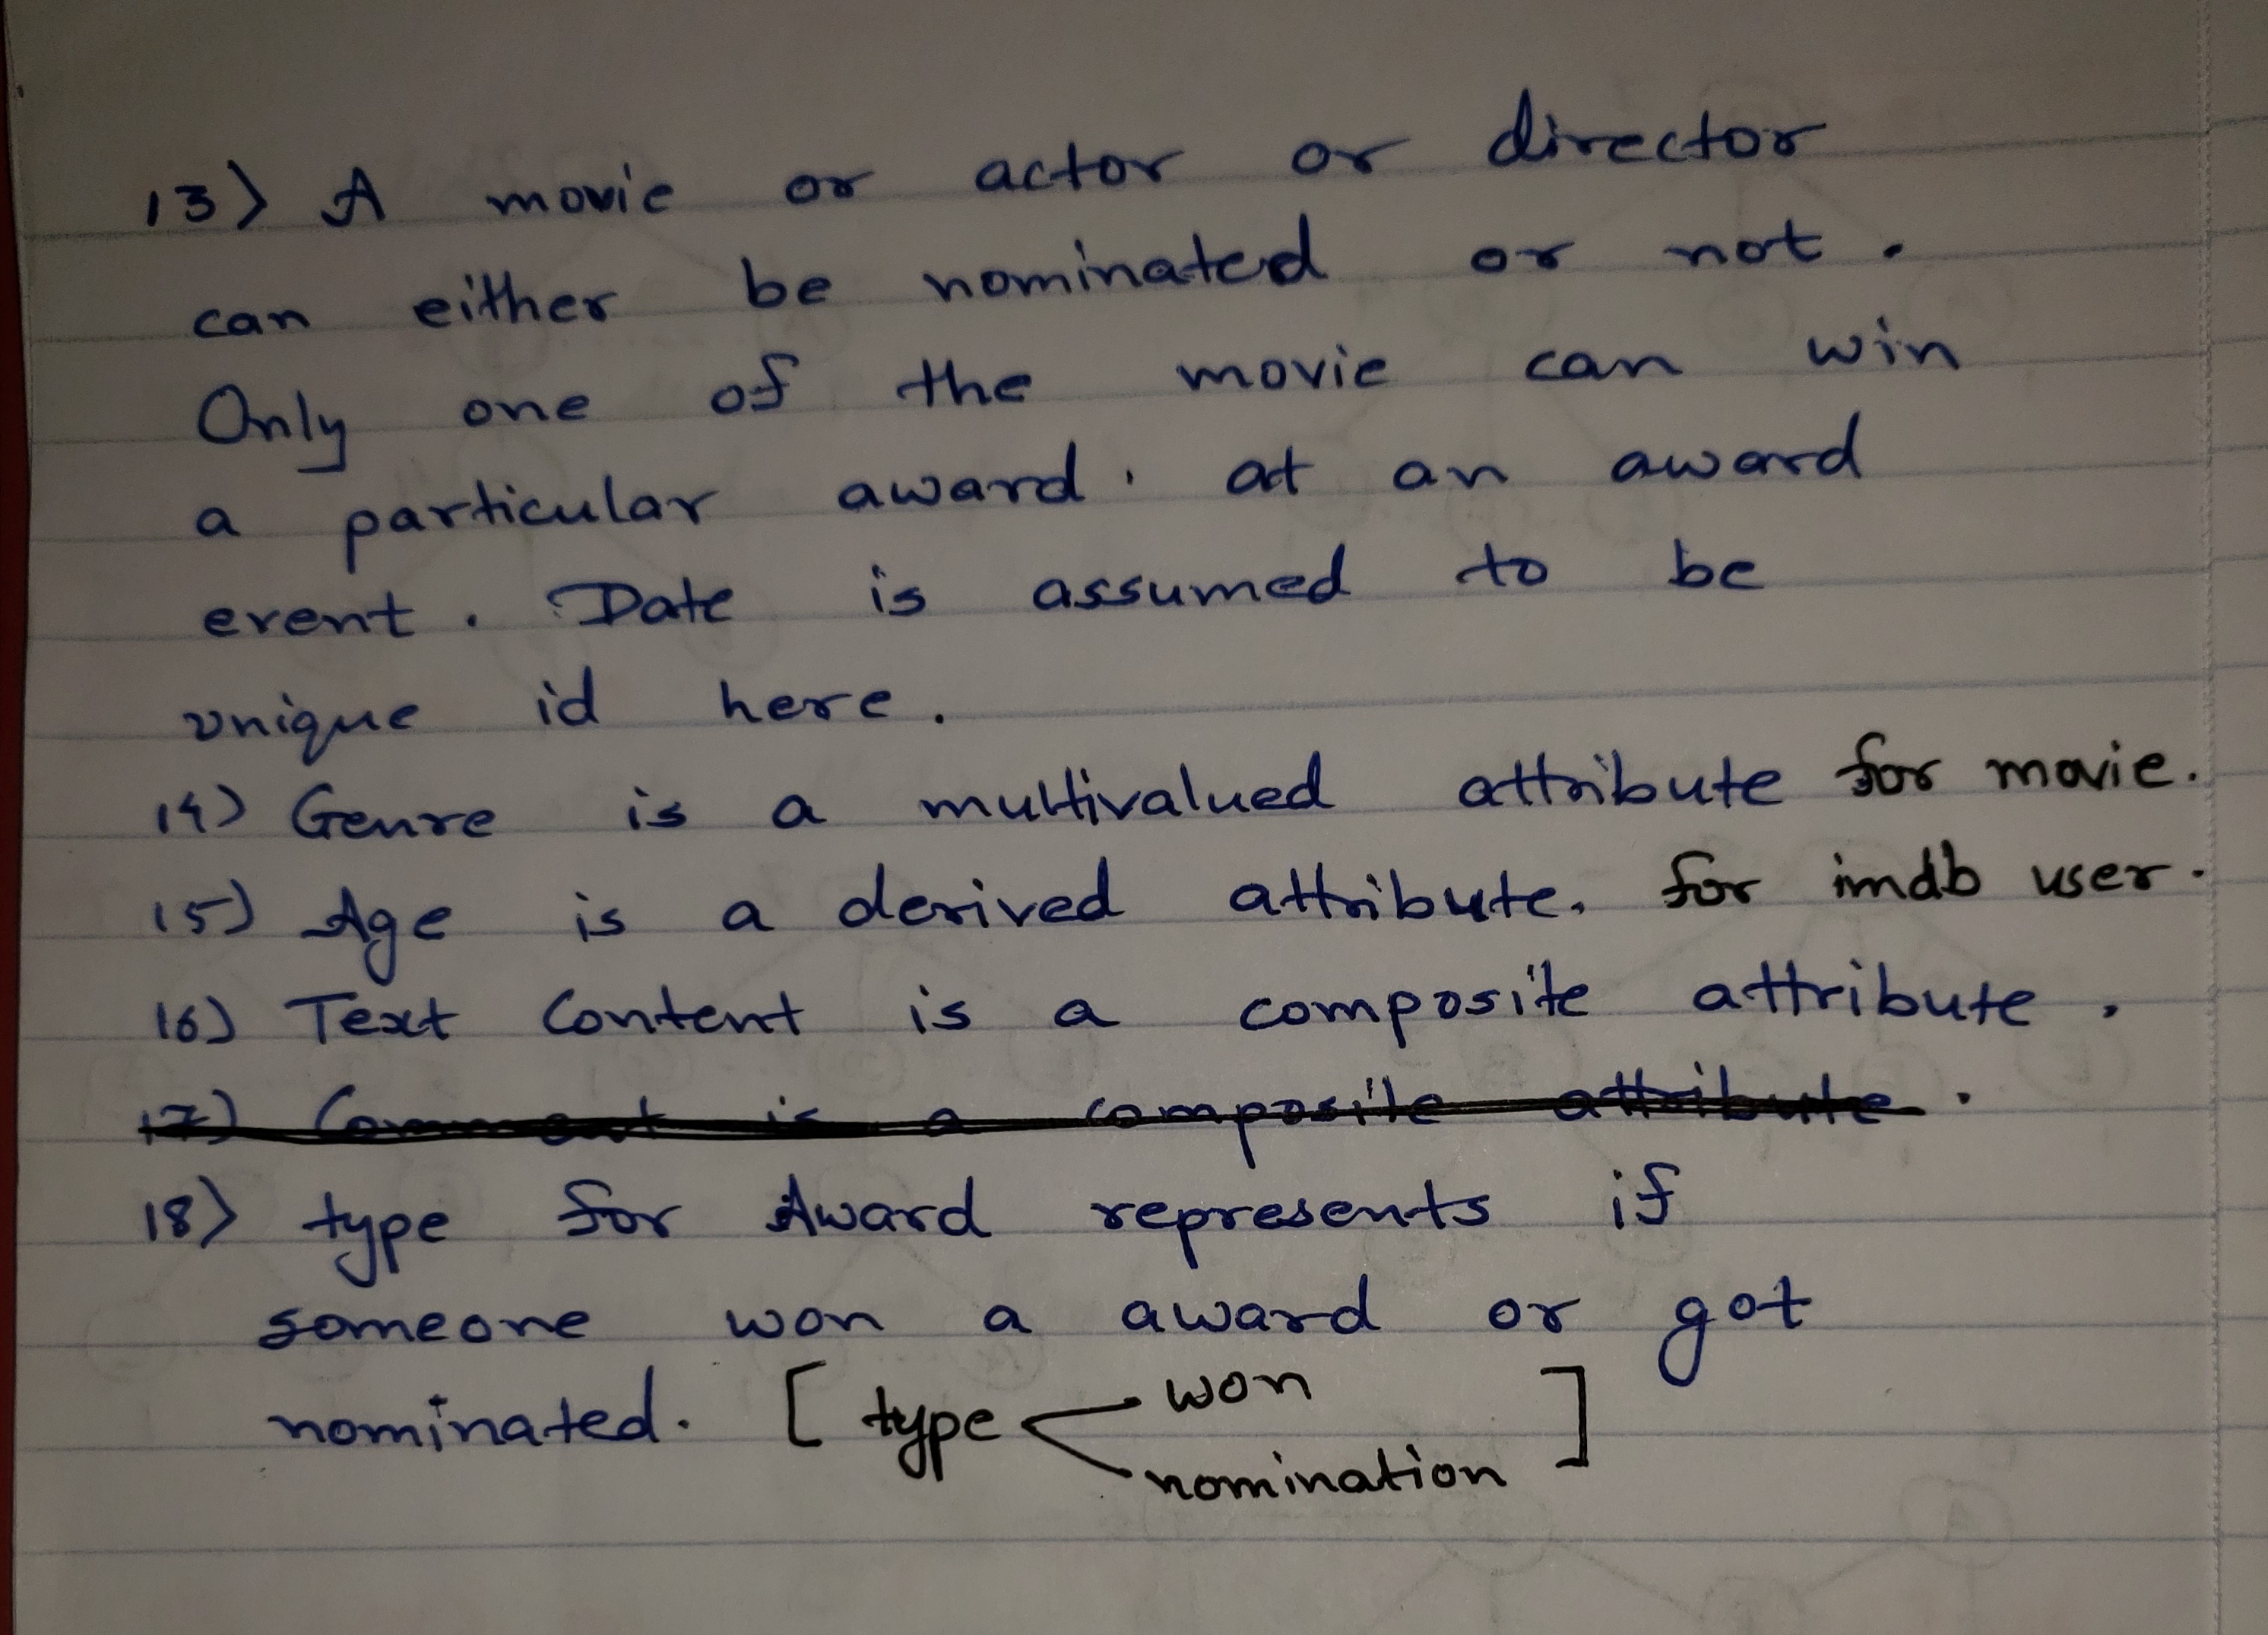 13) A movie or actor or director
can either be nominated or not.
Only one of the movie can win
a particular award. at an award
event. Date is assumed to be
unique id here.
14) Genre is a multivalued attribute for movie.
15) Age is a derived attribute. for imdb user.
16) Text Content is a composite attribute.
17) Comment is a composite attribute.
18) type for Award represents if
someone won a award or got
nominated. [type < won
nomination]